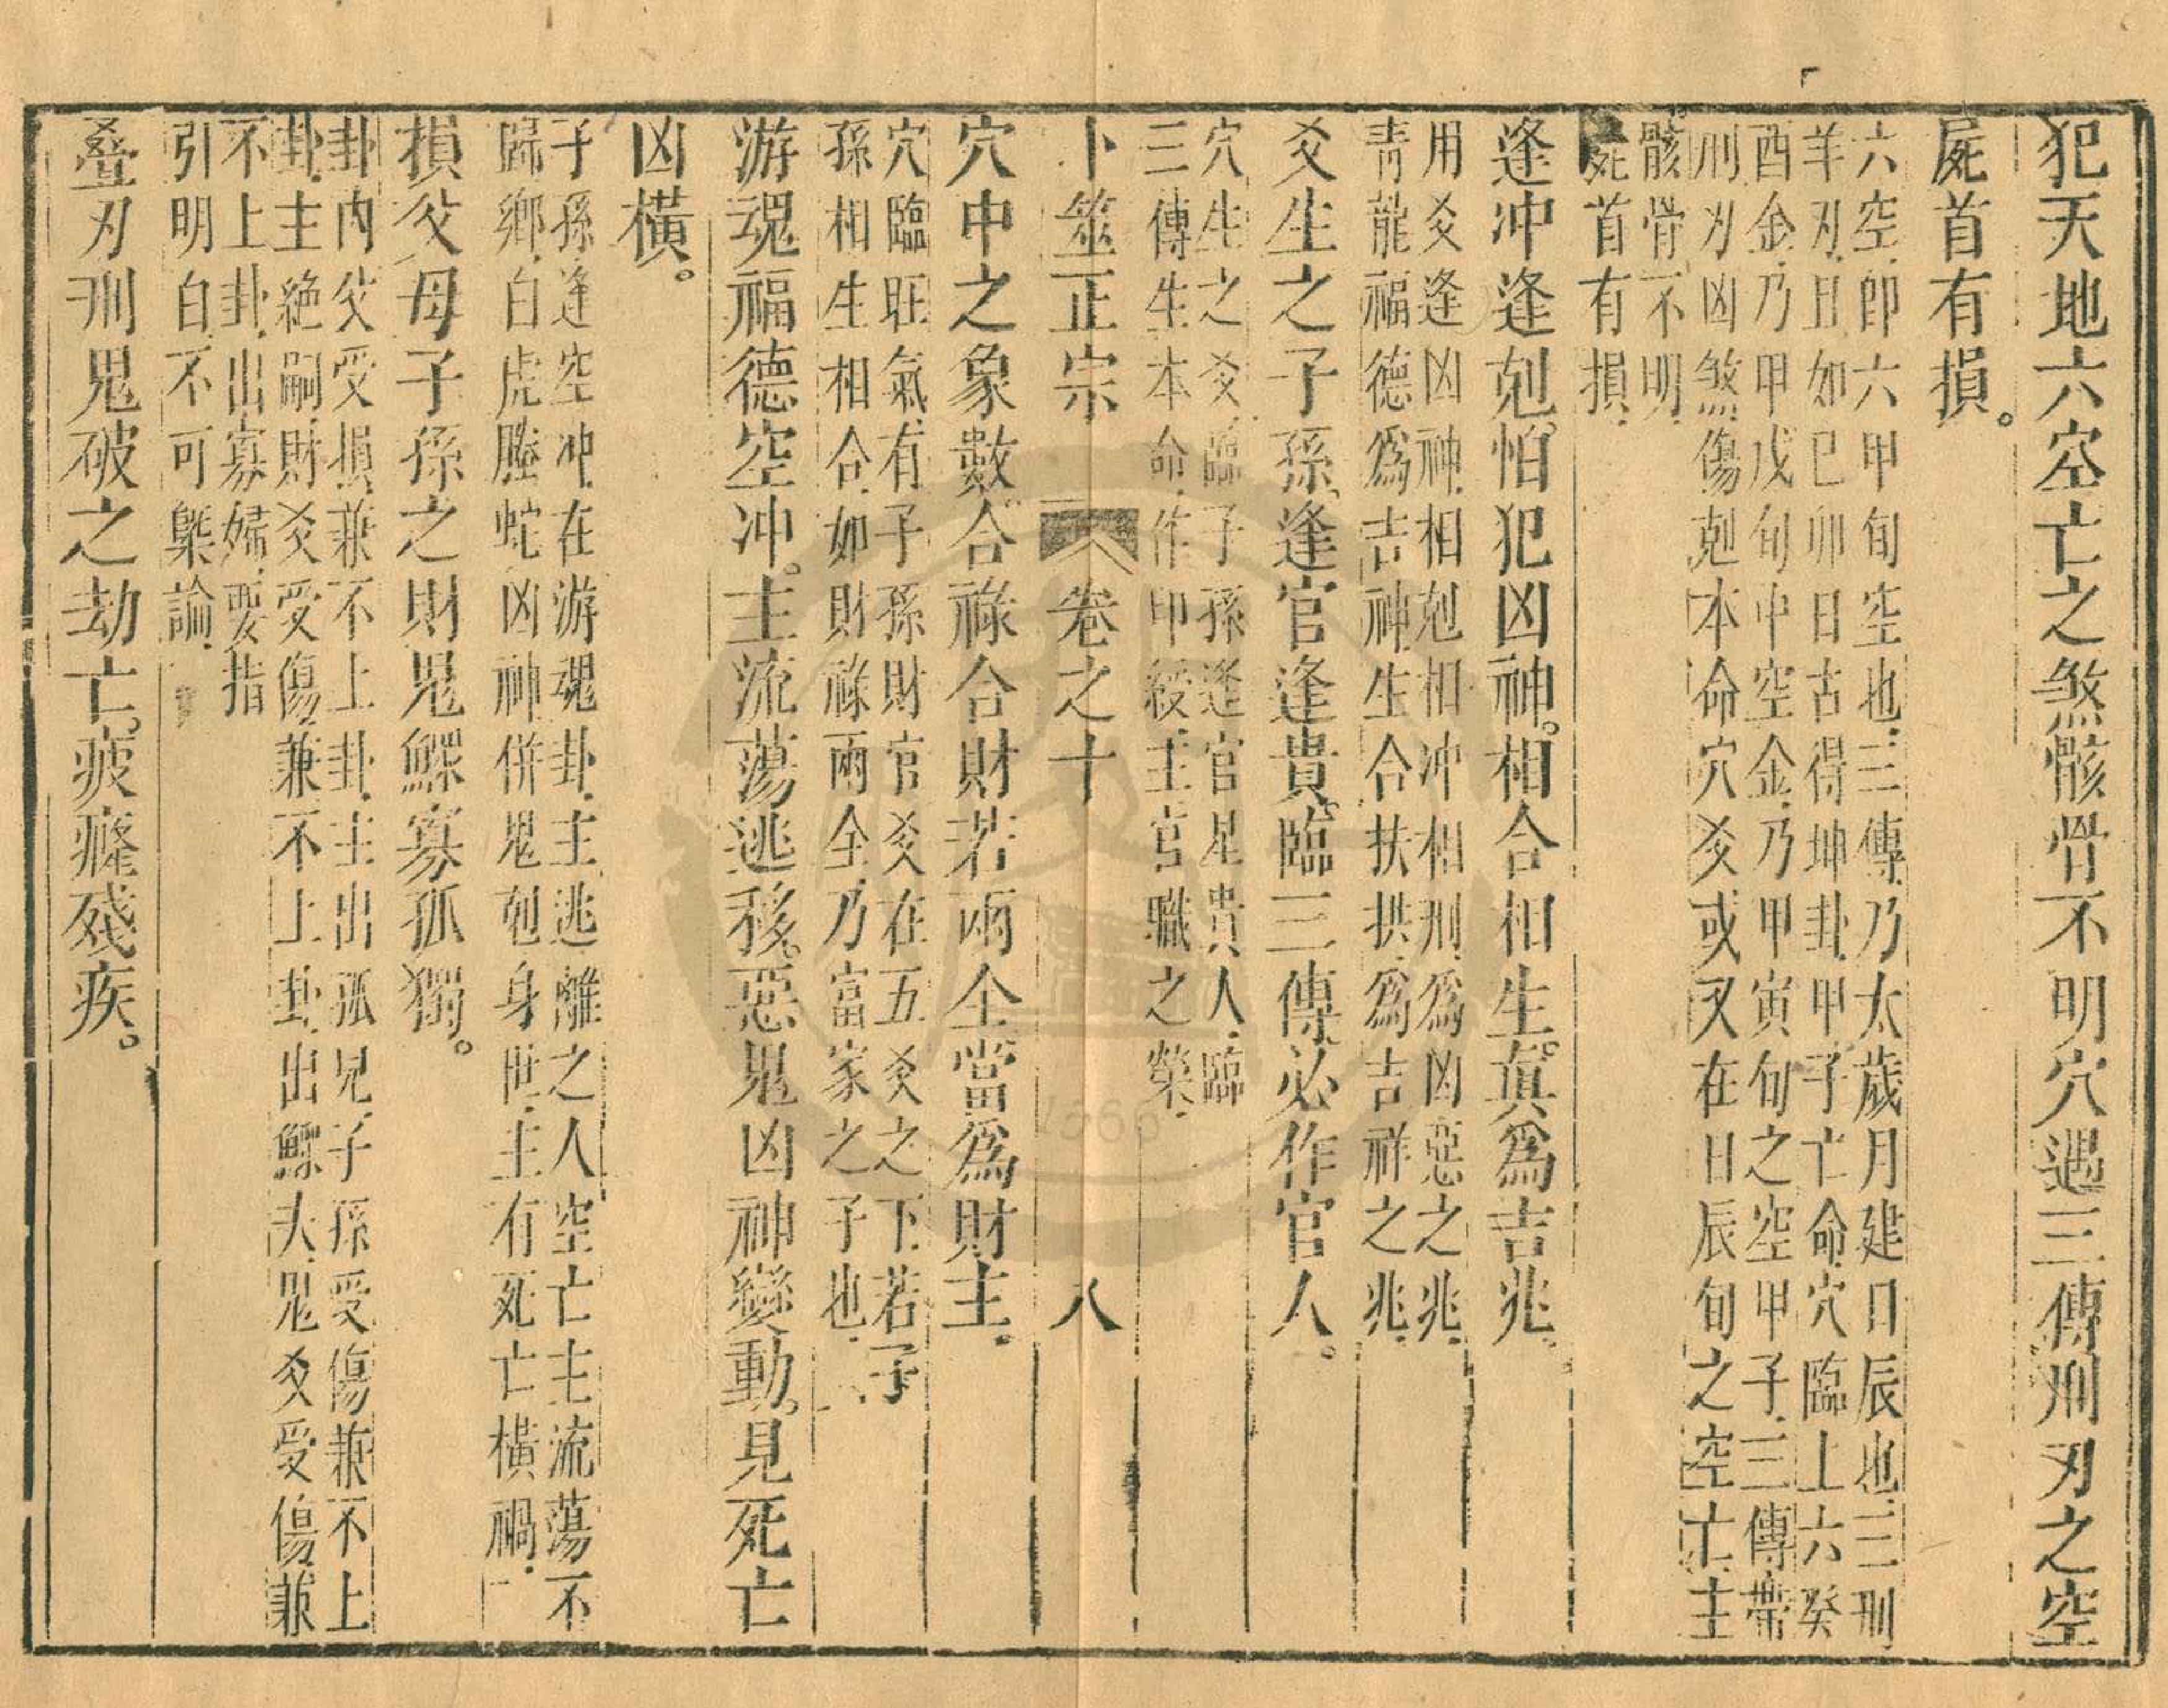 犯天地六空亡之煞骸骨不明穴遇三傳刑刃之空
屍首有損。
六空即六甲旬空也三傳乃太歲月建日辰也三刑
羊刃且如巳卯日古得坤卦甲子亡命穴臨上六癸
酉金乃甲戌旬中空金乃甲寅旬之空甲子三傳帶
刑刃凶煞傷剋本命穴爻或又在日辰旬之空亡主
骸骨不明
屍首有損
逢冲逢剋怕犯凶神。相合相生。眞爲吉兆
用爻逢凶神相剋相冲相刑爲凶惡之兆
靑龍福德爲吉神生合扶拱爲吉祥之兆
爻生之子孫逢官逢貴臨三傳必作官人。
穴生之爻臨子孫逢官星貴人臨
三傳生本命作印綬主官職之榮
卜筮正宗 卷之十 八
穴中之象數合祿合財若兩全當爲財主
穴臨旺氣有子孫財官爻在五爻之下若子
孫相生相合如財祿兩全乃富家之子也
游魂福德空冲。主流蕩逃移。惡鬼凶神變動。見死亡
凶橫。
子孫逢空冲在游魂卦主逃離之人空亡主流蕩不
歸鄉白虎螣蛇凶神併鬼剋身世主有死亡橫禍
損父母子孫之財鬼鰥寡孤獨。
卦內父受損兼不上卦主出孤兒子孫受傷兼不上
卦主絶嗣財爻受傷兼不上卦出鰥夫鬼爻受傷兼
不上卦出寡婦要指
引明白不可槩論
叠刃刑鬼破之劫亡。疲癃殘疾。